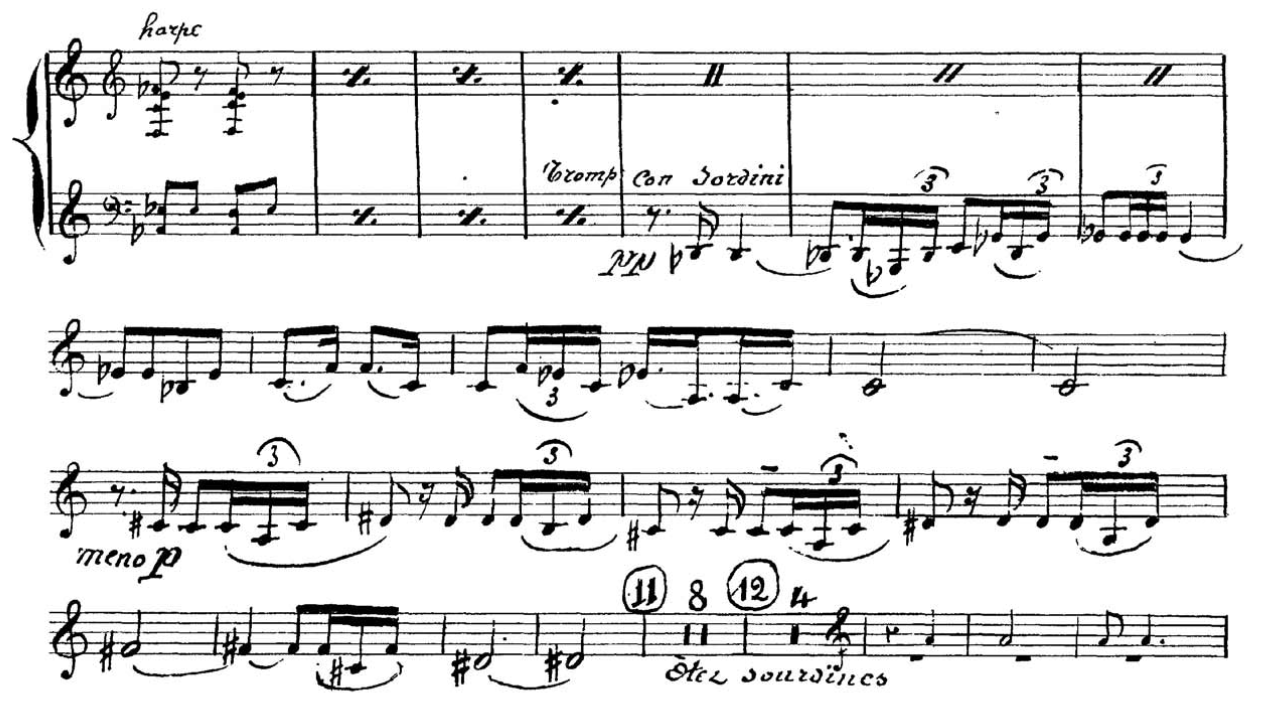 harpe
Tromp con sordini
3 3 3
pp
3
3 3 3 3
meno p
11 8 12 4
Otez sourdines